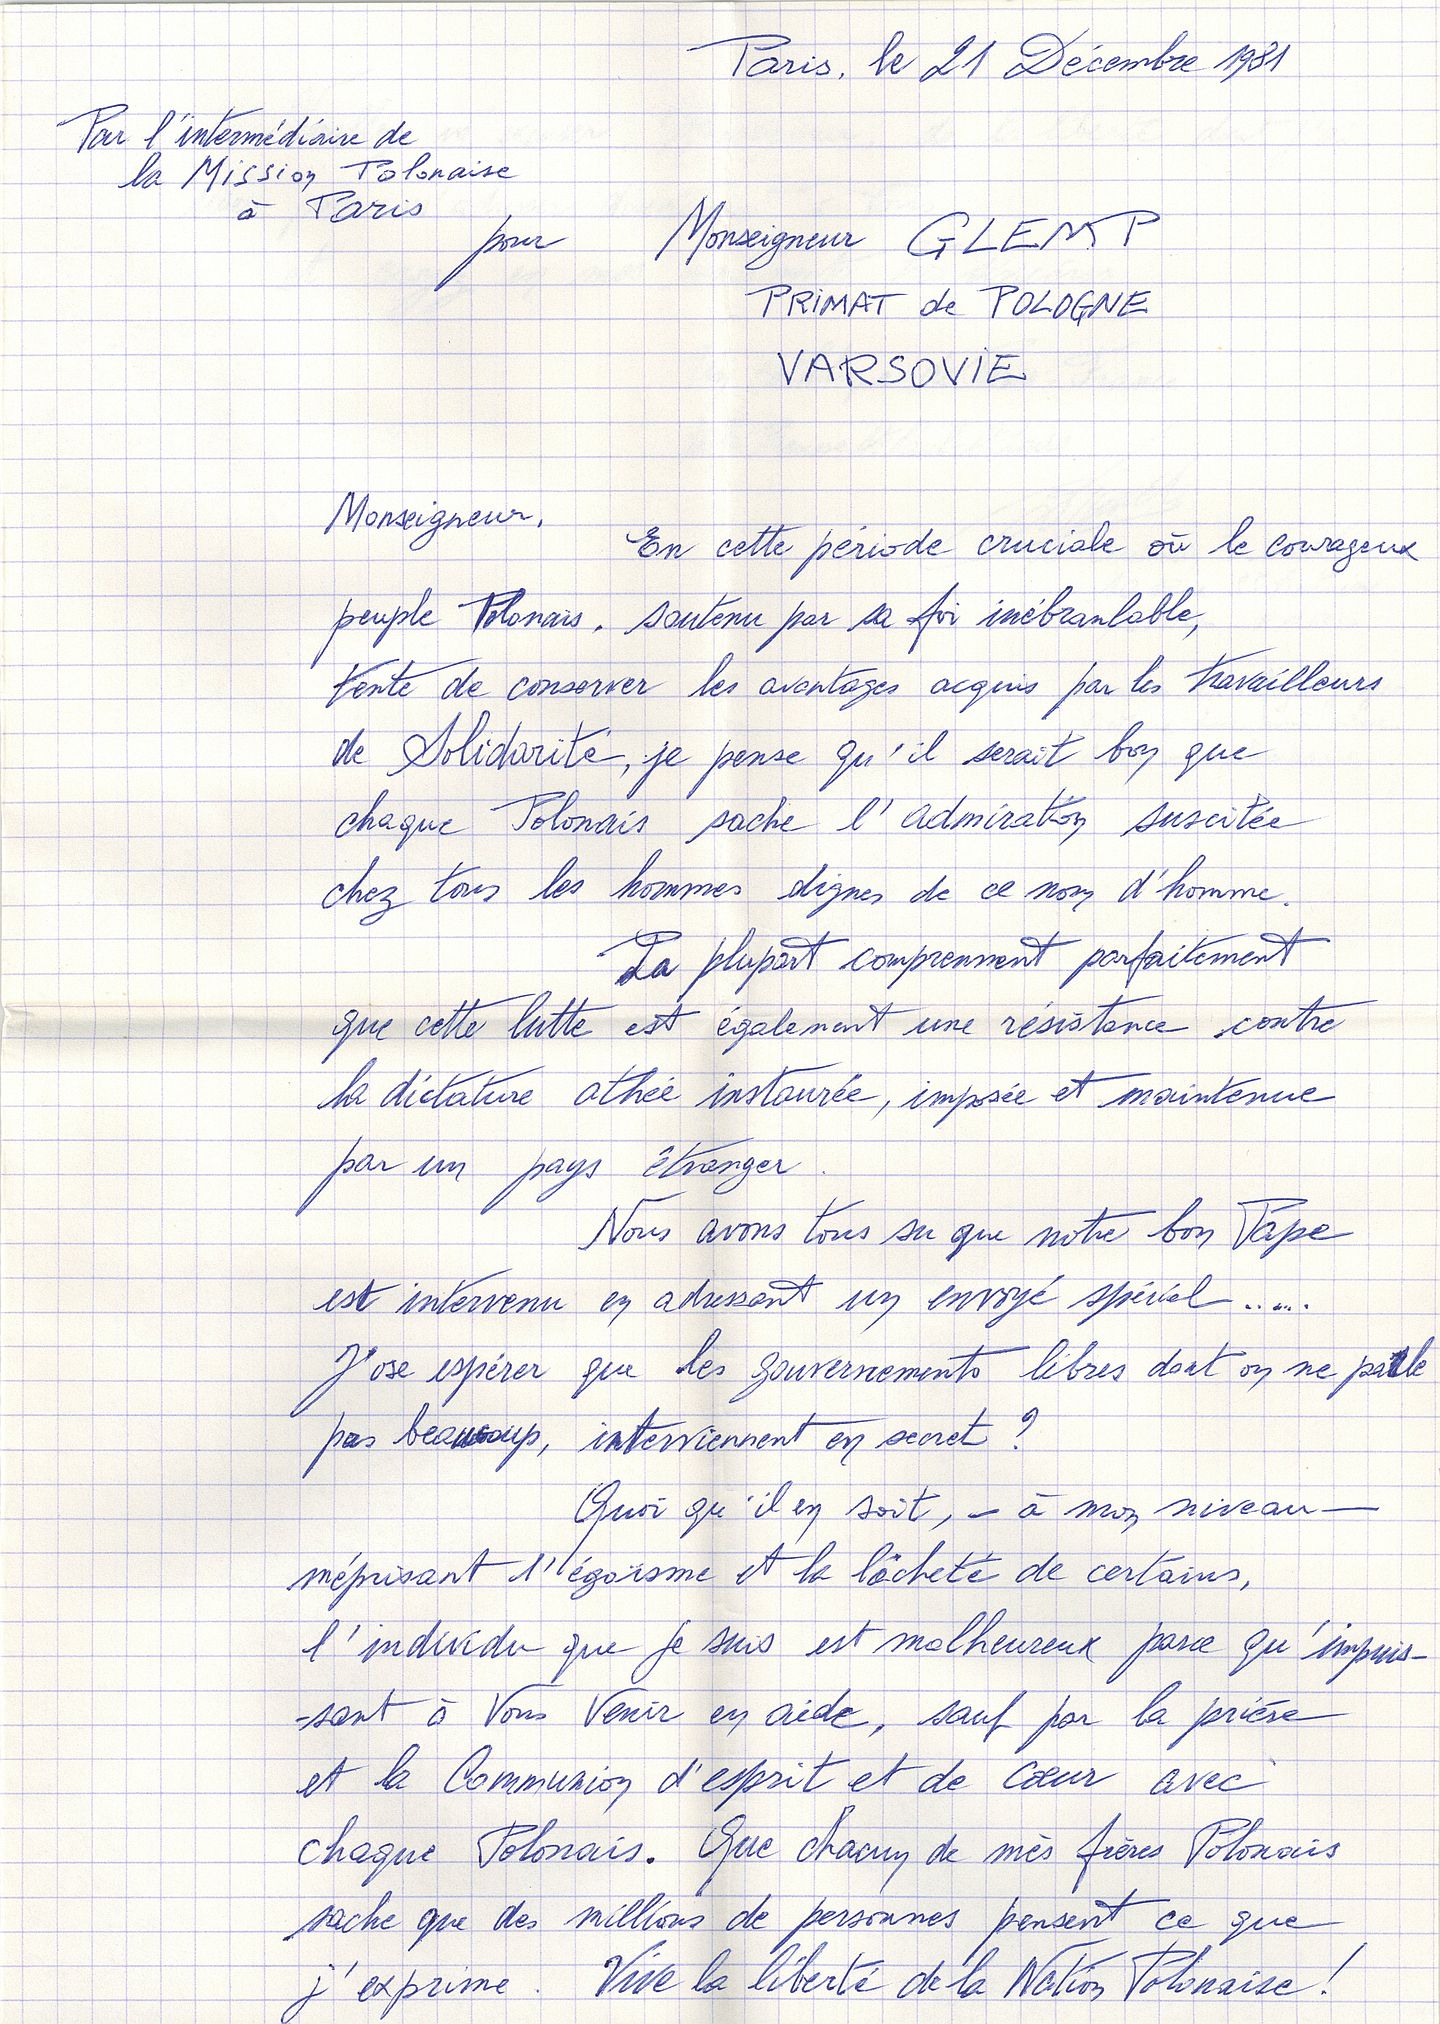 Paris, le 21 Décembre 1981
Par l'intermédiaire de
la Mission Polonaise
à Paris
pour Monseigneur GLEMP
PRIMAT de POLOGNE
VARSOVIE
Monseigneur,
En cette période cruciale où le courageux
peuple Polonais, soutenu par sa foi inébranlable,
tente de conserver les avantages acquis par les travailleurs
de Solidarité, je pense qu'il serait bon que
chaque Polonais sache l'admiration suscitée
chez tous les hommes dignes de ce nom d'homme.
La plupart comprennent parfaitement
que cette lutte est également une résistance contre
la dictature athée instaurée, imposée et maintenue
par un pays étranger.
Nous avons tous su que notre bon Pape
est intervenu en adressant un envoyé spécial .....
J'ose espérer que les gouvernements libres dont on ne parle
pas beaucoup, interviennent en secret ?
Quoi qu'il en soit, - à mon niveau -
méprisant l'égoïsme et la lâcheté de certains,
l'individu que je suis est malheureux parce qu'impuis-
-sant à Vous Venir en aide, sauf par la prière
et la Communion d'esprit et de cœur avec
chaque Polonais. Que chacun de mes frères Polonais
sache que des millions de personnes pensent ce que
j'exprime. Vive la liberté de la Nation Polonaise !